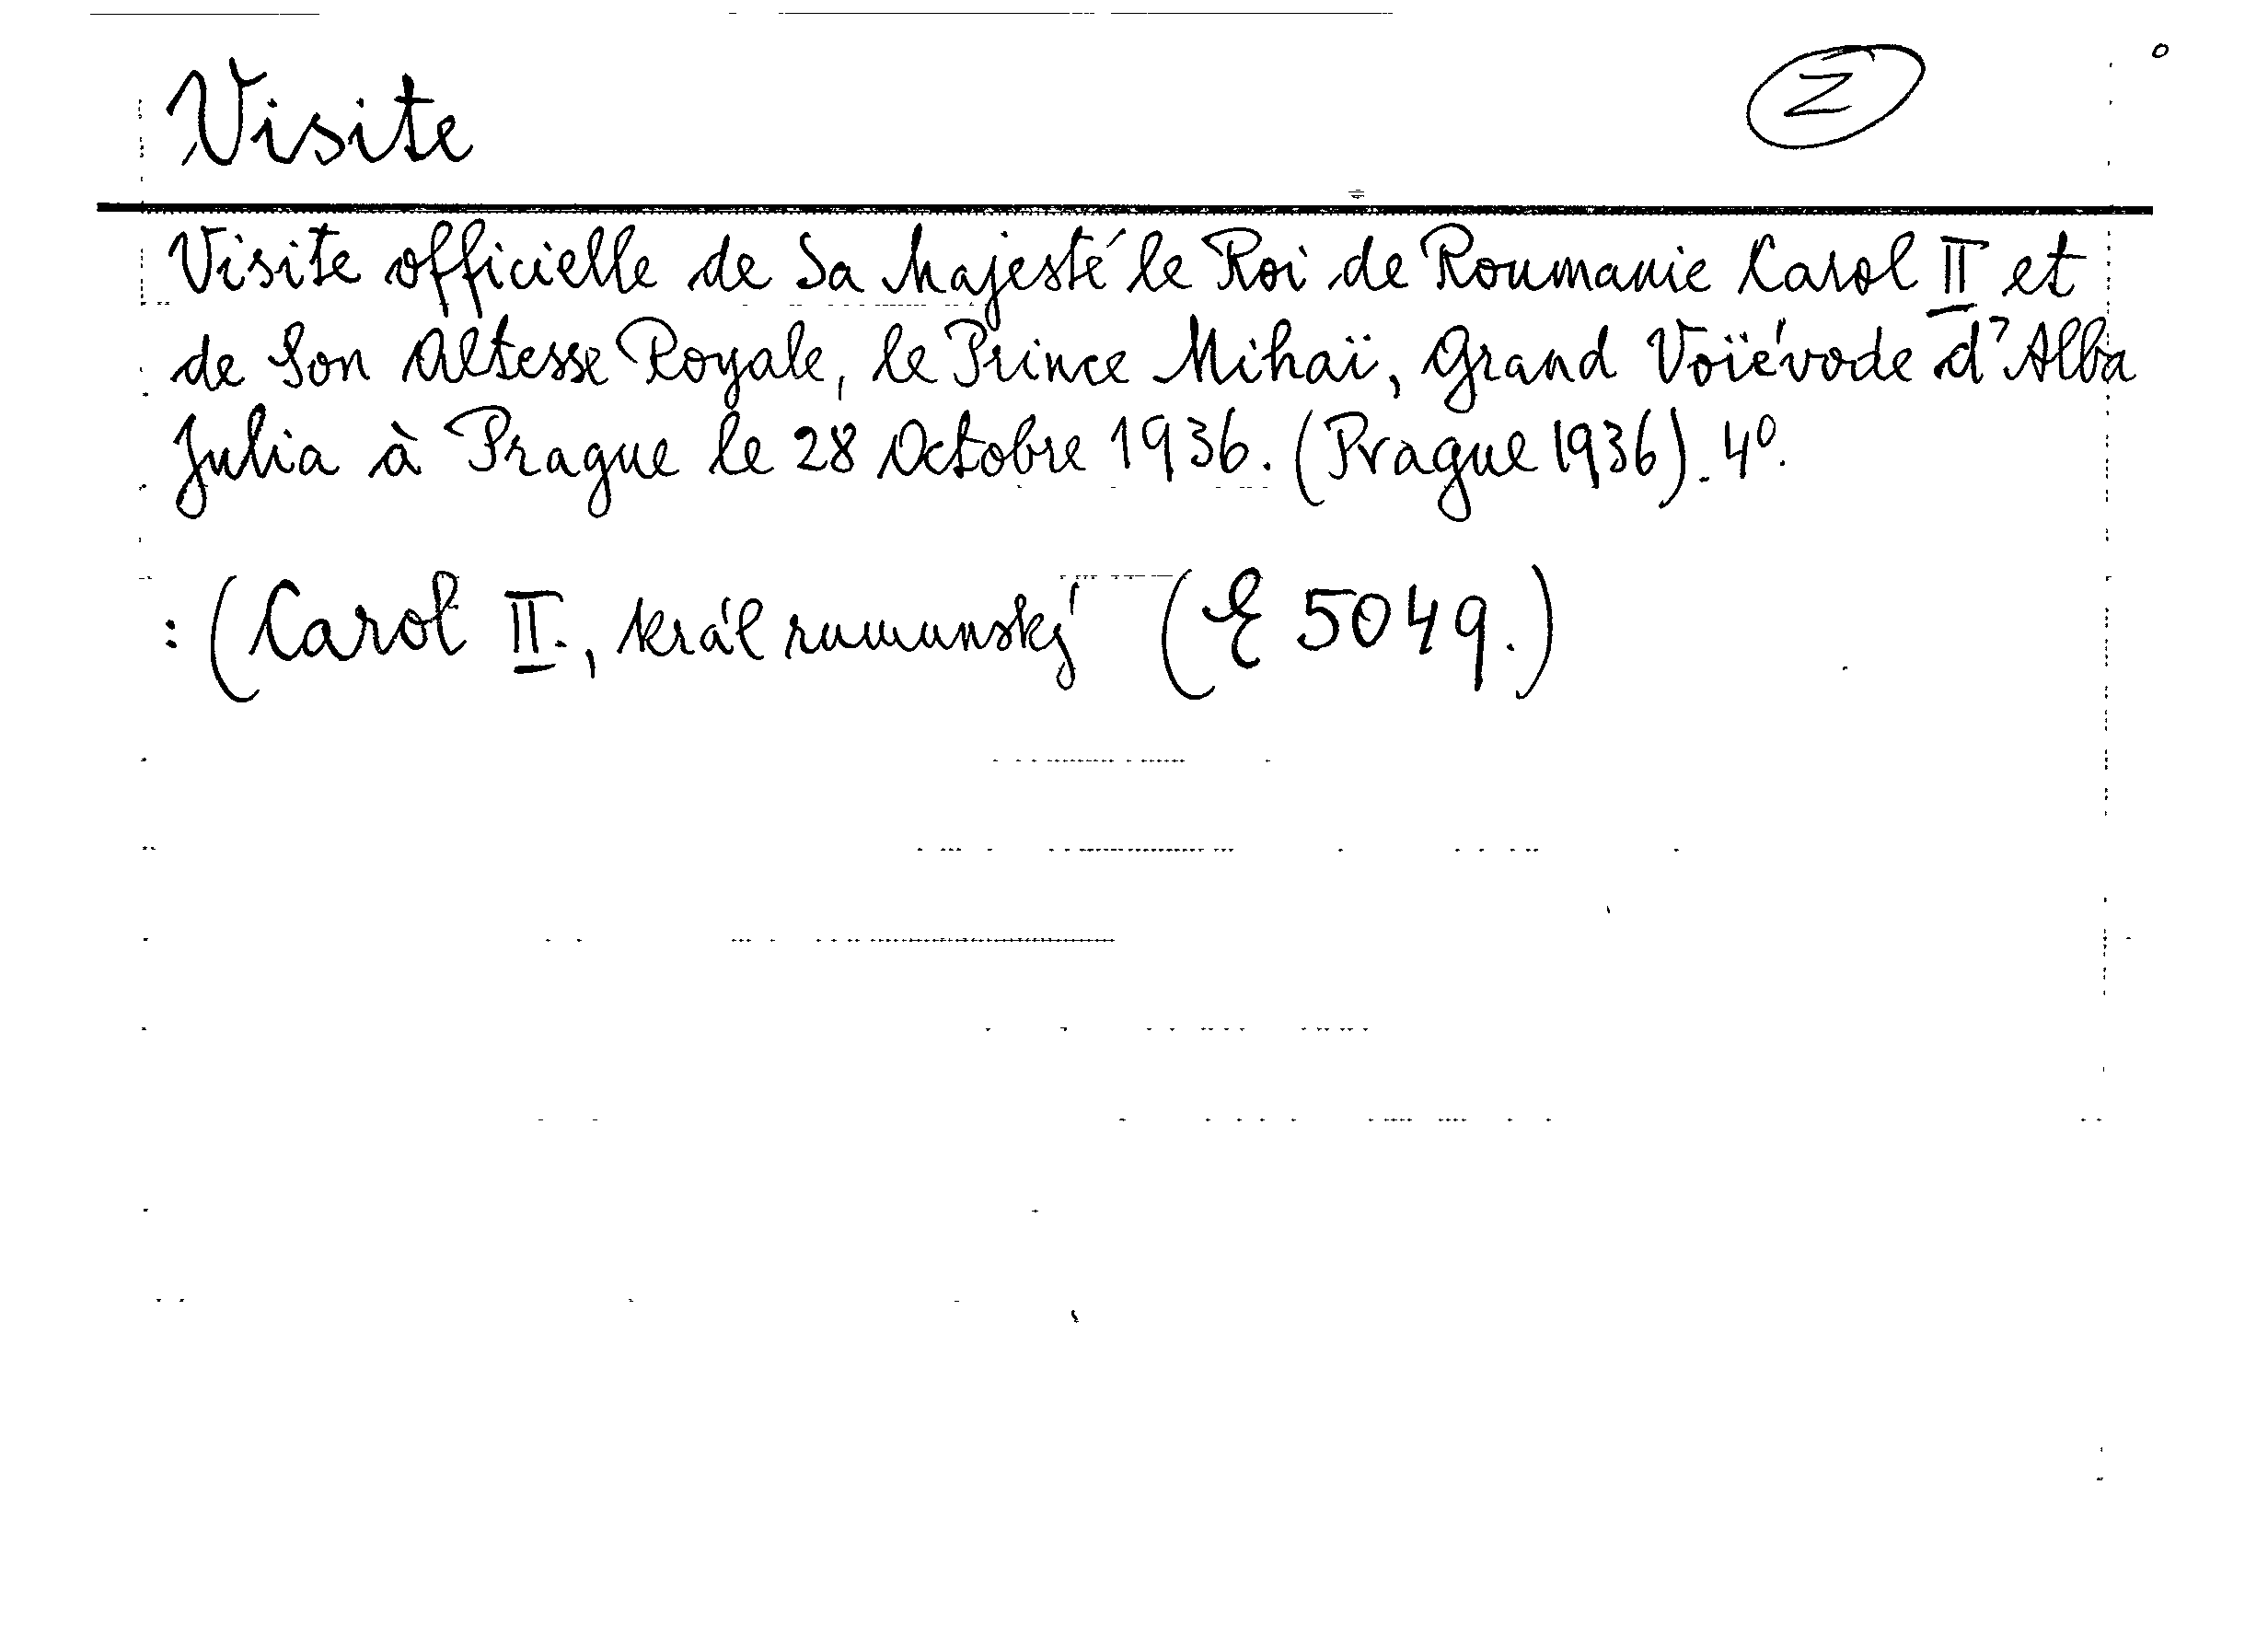 Visite
Z
Visite officielle de Sa Majesté le Roi de Roumanie Carol II et
de Son Altesse Royale, le Prince Mihaï, Grand Voïévode d'Alba
Julia à Prague le 28 Octobre 1936. (Prague 1936). 4º.
: (Carol II., král rumunský (E 5049.)